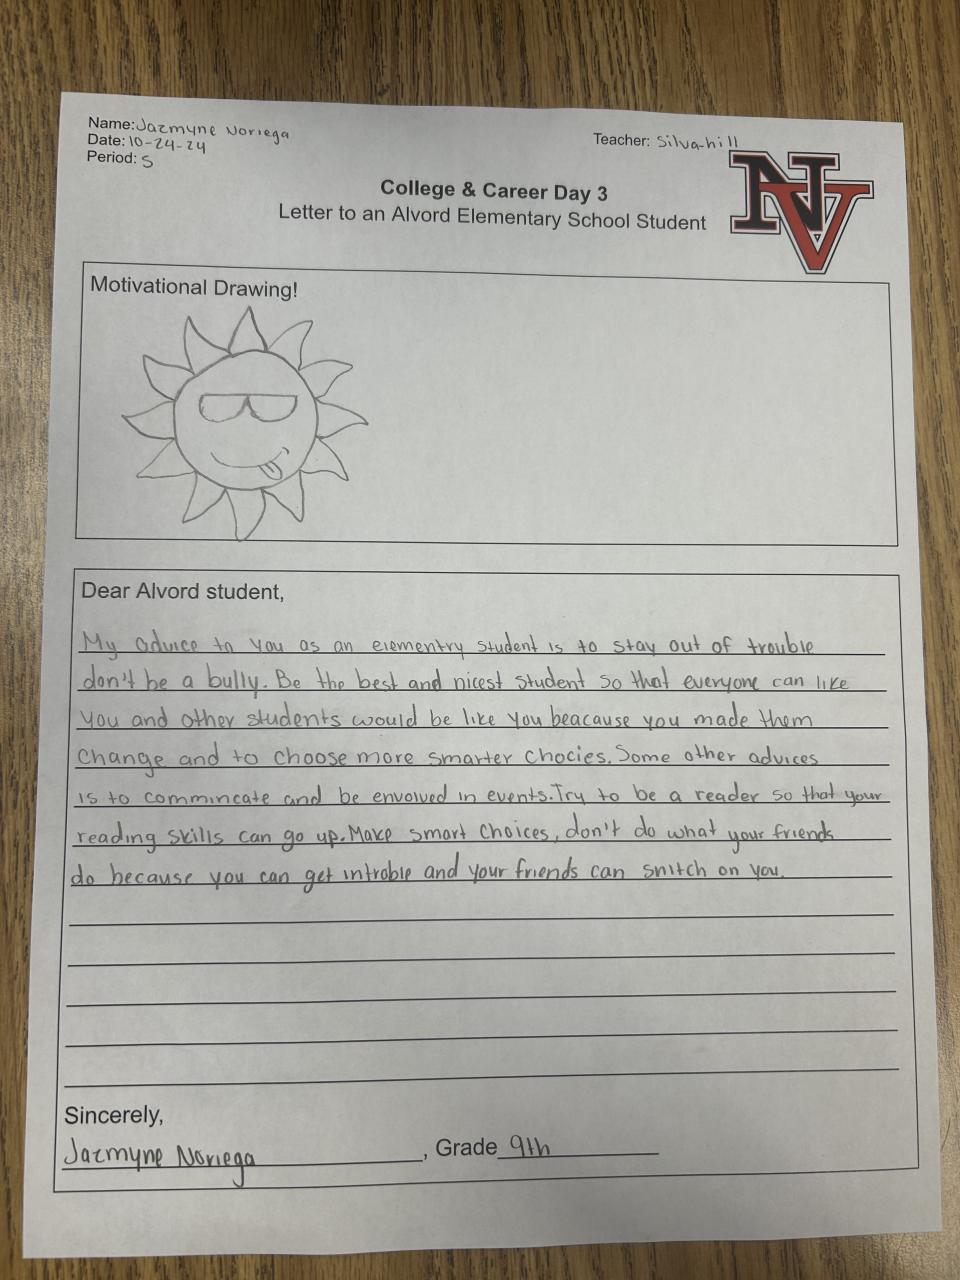 Name: Jazmyne Noriega
Date: 10-24-24
Period: 5
Teacher: Silva-hill
NV
College & Career Day 3
Letter to an Alvord Elementary School Student
Motivational Drawing!
Dear Alvord student,
My advice to you as an elementry student is to stay out of trouble
don't be a bully. Be the best and nicest student so that everyone can like
you and other students would be like you beacause you made them
change and to choose more smarter chocies. Some other advices
is to commincate and be envolved in events. Try to be a reader so that your
reading skills can go up. Make smart choices, don't do what your friends
do because you can get introble and your friends can snitch on you.
Sincerely,
Jazmyne Noriega, Grade 9th